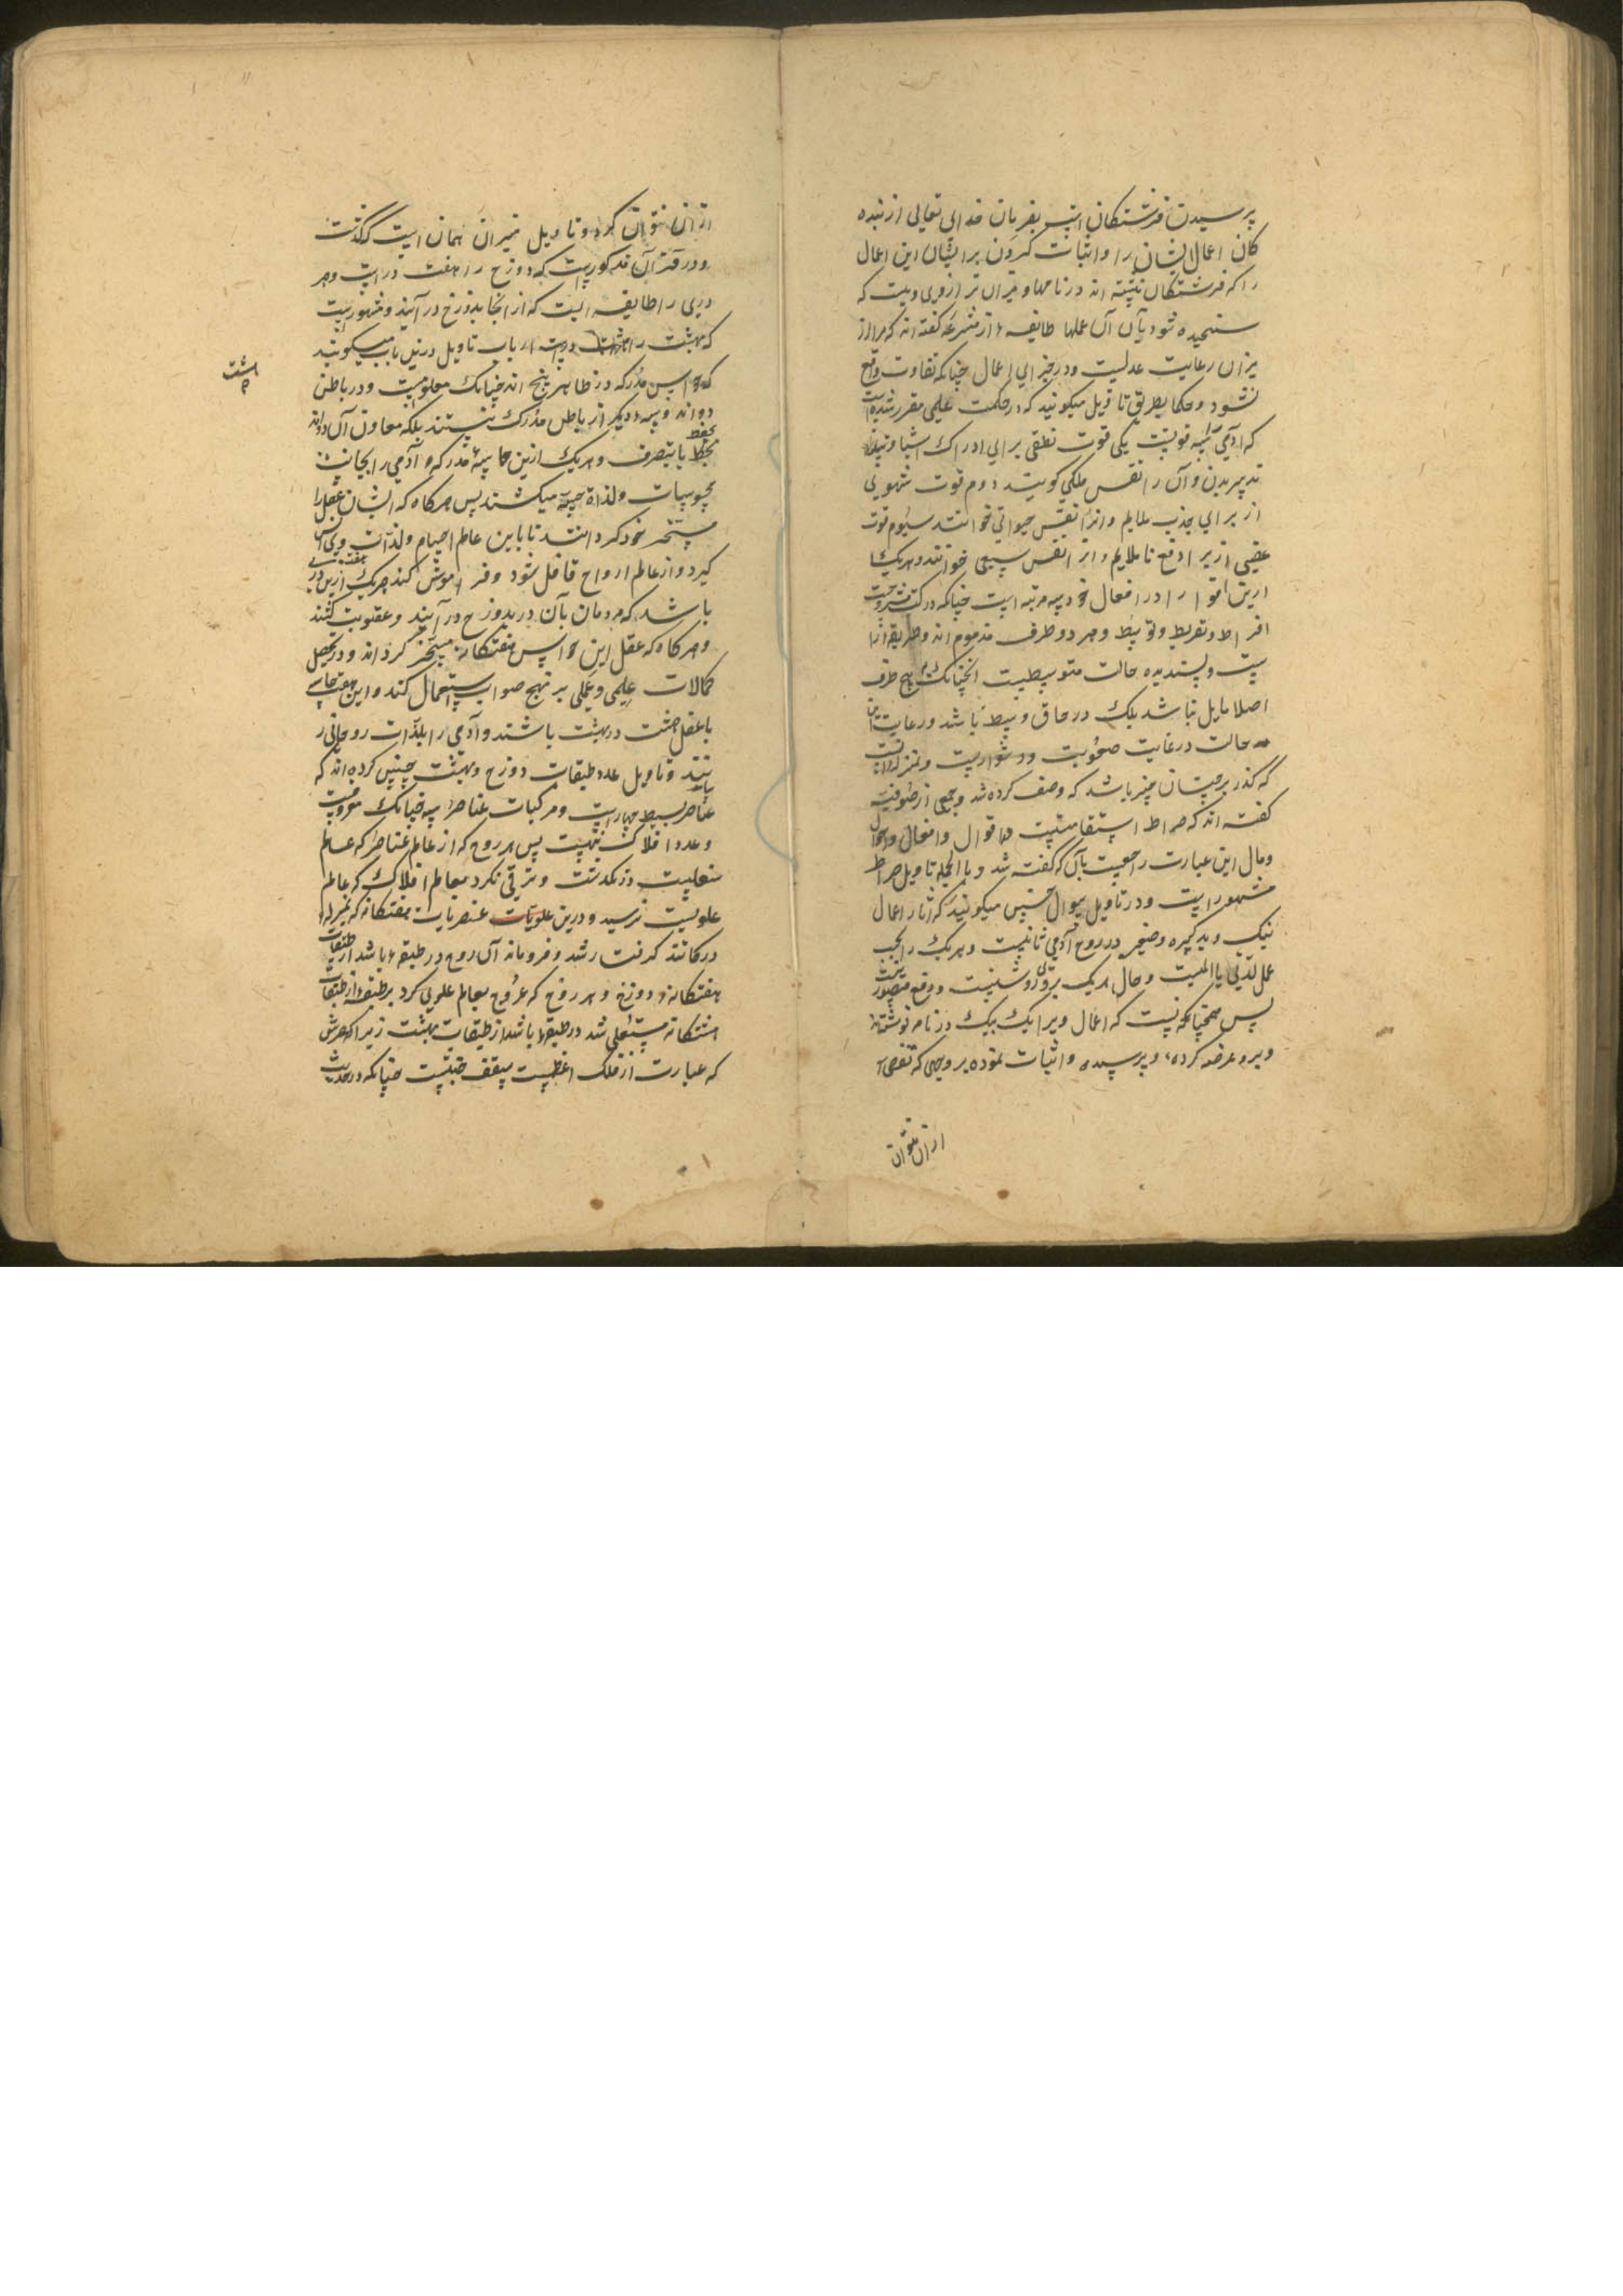 پرسیدن فرشتکان است بفرمان خدای تعالی از بنده
کان اعمال ایشان را و اثبات کردن بر ایشان این اعمال
را که فرشتکان نبشته اند در نامها و میزان ترازوی ویست که
سنجیده شود بآن آن عملها طایفهٔ از متشرعه کفته اند که مراد از
میزان رعایت عدلیست و در جزای اعمال چنانکه تفاوت واقع
نشود و حکما بطریق تاویل میکویند که در حکمت علمی مقرر شده است
که آدمی را سه قوتست یکی قوت نطقی برای ادراک اشیا و تمیز و
تدبیر بدن و آن را نفس ملکی کویند دوم قوت شهوی
از برای جذب ملایم و آنرا نفس حیوانی خوانند سیوم قوت
غضبی از برای دفع ناملایم و آنرا نفس سبعی خوانند و هریک را
ازین قوا را در افعال خود سه مرتبه است چنانکه در کتب مشروحست
افراط و تفریط و توسط و هر دو طرف مذموم اند و طریقه آنرا
ست و پسندیده حالت متوسطیست آنچنانک بهیچ طرف
اصلا مایل نباشد بلک در حاق وسط باشد و رعایت این
حالت در غایت صعوبت و دشواریست و بمنزله آنست
که کذر بر چنان چیز باشد که وصف کرده شد و جمعی از صوفیه
کفته اند که صراط استقامتست در اقوال و افعال و احوال
و مآل این عبارت راجعست بآن که کفته شد و بالجمله تاویل صراط
مشهور است و در تاویل سوال چنین میکویند که آثار اعمال
نیک و بد کبیره و صغیر در روح آدمی ثابتست و هریک را بحسب
عمل لذتی یا المیست و حال هریک بروی روشنست و دفع متصور نیست
پس همچنانکه نیست که اعمال ویرا یک بیک در نامه نوشته اند
و برو عرضه کرده و پرسیده و اثبات نموده بر وجهی که تفصی
ازان نتوان
ازان نتوان کرد و تاویل میزان همان است کذشت
و در قرآن مذکورست که دوزخ را هفت درست و هر
دری را طایفه ایست که از انجا بدوزخ در آیند و مشهورست
که بهشت را هشت درست ارباب تاویل درین باب میکویند
که حواس مدرکه در ظاهر پنج اند چنانک معلومست و در باطن
دو اند و سه دیکر از باطن مدرک نیستند بلکه معاون آن دو اند
بحفظ
یا بتصرف و هریک ازین حاسهٔ مدرکه آدمی را بجانب
محسوسات و لذات حسیه میکشند پس هرکاه که ایشان عقل را
مسخر خود کردانند تا باین عالم اجسام و لذات وی انس
کیرد و از عالم ارواح غافل شود و فراموش کند هریک ازین دری
باشد که مردمان بآن در بدوزخ در آیند و عقوبت کشند
و هرکاه که عقل این حواس هفتکانه مسخر کرداند و در تحصیل
کمالات علمی و عملی بر نهج صواب استعمال کند و این هفت حاسه
با عقل هشت در بهشت باشند و آدمی را بلذات روحانی ر
سانند و تاویل عدد طبقات دوزخ و بهشت چنین کرده اند که
عناصر بسیط چهارست و مرکبات عناصر سه چنانک معروفست
و عدد افلاک نهست پس هر روح که از عالم عناصر که عالم
سفلیست در نکذشت و ترقی نکرد بعالم افلاک که عالم
علویست نرسید و درین علویات عنصریات هفتکانه که بمنزلهٔ
درکاتند کرفتار شد و فروماند آن روح در طبقهٔ باشد از طبقات
هفتکانهٔ دوزخ و هر روح که عروج بعالم علوی کرد بر طبقهٔ از طبقات
هشتکانه مستعلی شد در طبقهٔ باشد از طبقات بهشت زیرا که عرش
که عبارت از فلک اعظمست سقف جنتست چنانکه در حدیث
هشت